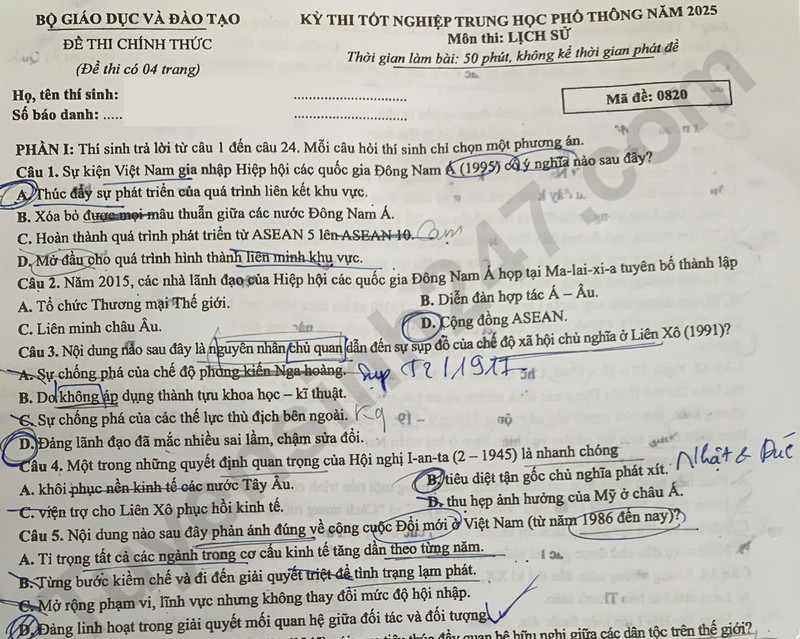 BỘ GIÁO DỤC VÀ ĐÀO TẠO
ĐỀ THI CHÍNH THỨC
(Đề thi có 04 trang)
KỲ THI TỐT NGHIỆP TRUNG HỌC PHỔ THÔNG NĂM 2025
Môn thi: LỊCH SỬ
Thời gian làm bài: 50 phút, không kể thời gian phát đề
Họ, tên thí sinh: ..............................
Số báo danh: ..... ..............................
Mã đề: 0820
PHẦN I: Thí sinh trả lời từ câu 1 đến câu 24. Mỗi câu hỏi thí sinh chỉ chọn một phương án.
Câu 1. Sự kiện Việt Nam gia nhập Hiệp hội các quốc gia Đông Nam Á (1995) có ý nghĩa nào sau đây?
A. Thúc đẩy sự phát triển của quá trình liên kết khu vực.
B. Xóa bỏ được mọi mâu thuẫn giữa các nước Đông Nam Á.
C. Hoàn thành quá trình phát triển từ ASEAN 5 lên ASEAN 10. Cam
D. Mở đầu cho quá trình hình thành liên minh khu vực.
Câu 2. Năm 2015, các nhà lãnh đạo của Hiệp hội các quốc gia Đông Nam Á họp tại Ma-lai-xi-a tuyên bố thành lập
A. Tổ chức Thương mại Thế giới. B. Diễn đàn hợp tác Á – Âu.
C. Liên minh châu Âu. D. Cộng đồng ASEAN.
Câu 3. Nội dung nào sau đây là nguyên nhân chủ quan dẫn đến sự sụp đổ của chế độ xã hội chủ nghĩa ở Liên Xô (1991)?
A. Sự chống phá của chế độ phong kiến Nga hoàng. sụp T2/1917
B. Do không áp dụng thành tựu khoa học – kĩ thuật.
C. Sự chống phá của các thế lực thù địch bên ngoài. Kq
D. Đảng lãnh đạo đã mắc nhiều sai lầm, chậm sửa đổi.
Câu 4. Một trong những quyết định quan trọng của Hội nghị I-an-ta (2 – 1945) là nhanh chóng
A. khôi phục nền kinh tế các nước Tây Âu. B. tiêu diệt tận gốc chủ nghĩa phát xít. Nhật & Đức
C. viện trợ cho Liên Xô phục hồi kinh tế. D. thu hẹp ảnh hưởng của Mỹ ở châu Á.
Câu 5. Nội dung nào sau đây phản ánh đúng về công cuộc Đổi mới ở Việt Nam (từ năm 1986 đến nay)?
A. Tỉ trọng tất cả các ngành trong cơ cấu kinh tế tăng dần theo từng năm.
B. Từng bước kiềm chế và đi đến giải quyết triệt để tình trạng lạm phát.
C. Mở rộng phạm vi, lĩnh vực nhưng không thay đổi mức độ hội nhập.
D. Đảng linh hoạt trong giải quyết mối quan hệ giữa đối tác và đối tượng.
thúc đẩy quan hệ hữu nghị giữa các dân tộc trên thế giới?
tuyensinh247.com